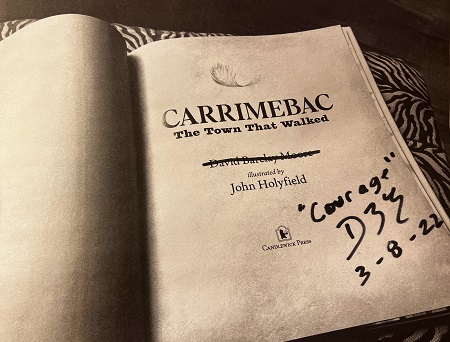 CARRIMEBAC
The Town That Walked
David Barclay Moore
illustrated by
John Holyfield
"Courage"
CANDLEWICK PRESS
3-8-22